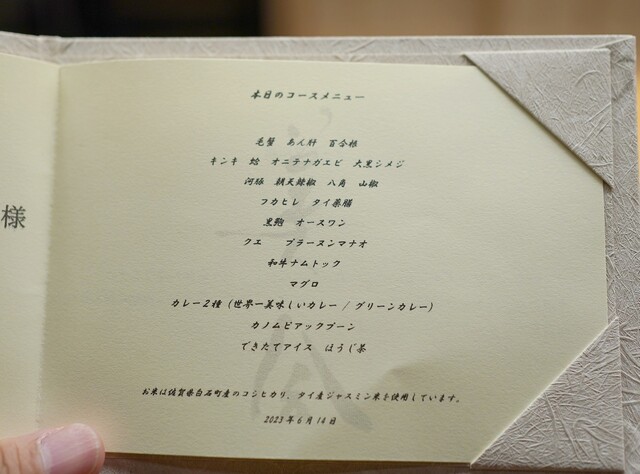 様
本日のコースメニュー
毛蟹 あん肝 百合根
キンキ 蛤 オニテナガエビ 大黒シメジ
河豚 朝天辣椒 八角 山椒
フカヒレ タイ薬膳
黒鮑 オースワン
クエ プラーヌンマナオ
和牛ナムトック
マグロ
カレー2種(世界一美味しいカレー / グリーンカレー)
カノムピアックプーン
できたてアイス ほうじ茶
お米は佐賀県白石町産のコシヒカリ、タイ産ジャスミン米を使用しています。
2023年6月14日